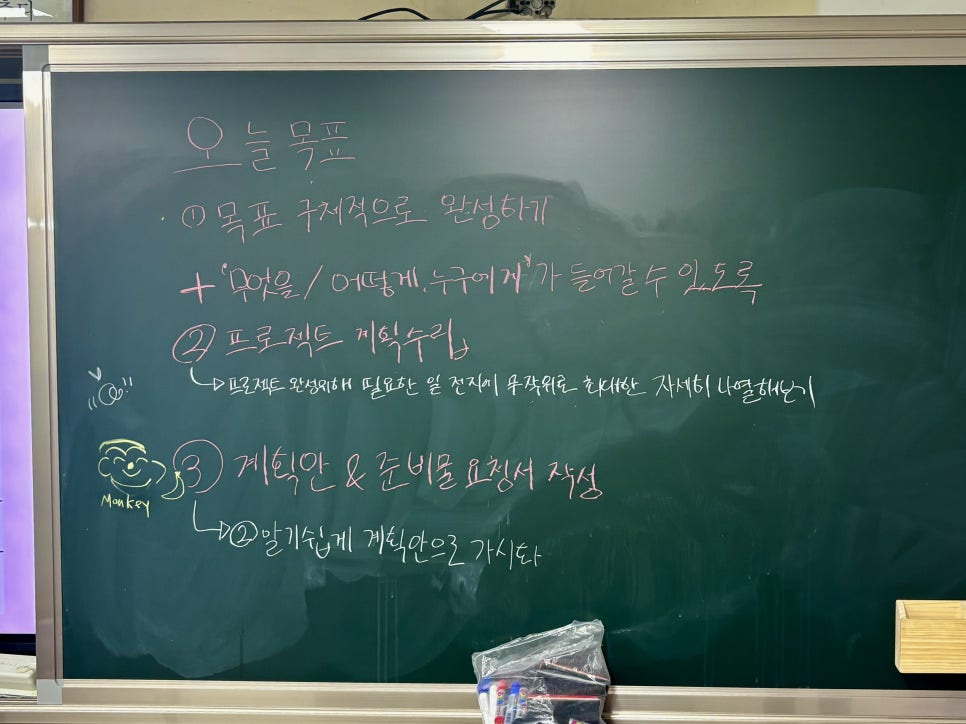 오늘 목표
① 목표 구체적으로 완성하기
+ "무엇을 / 어떻게, 누구에게"가 들어갈 수 있도록
② 프로젝트 계획수립
↳ 프로젝트 완성위해 필요한 일 전지에 무작위로 최대한 자세히 나열해보기
③ 계획안 & 준비물 요청서 작성
Monkey
↳ ② 알기쉽게 계획안으로 가시화